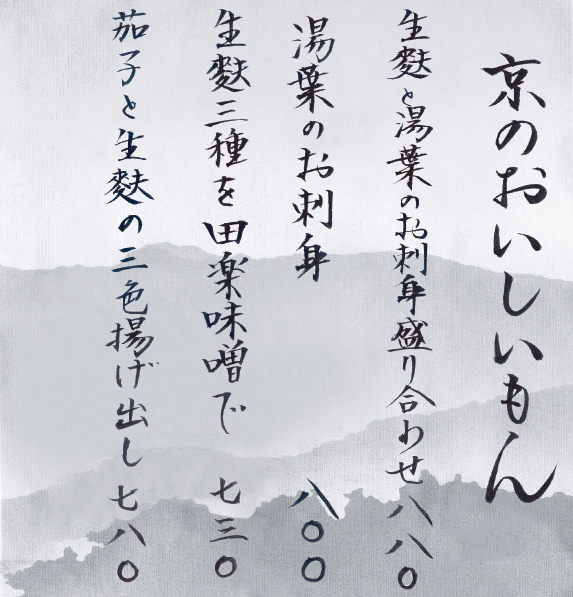 京のおいしいもん
生麩と湯葉のお刺身盛り合わせ 八八〇
湯葉のお刺身 八〇〇
生麩三種を田楽味噌で 七三〇
茄子と生麩の三色揚げ出し 七八〇